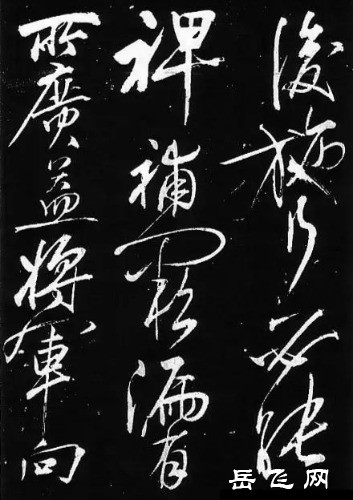 後施行必能
裨補闕漏有
所廣益將軍向
岳飞网